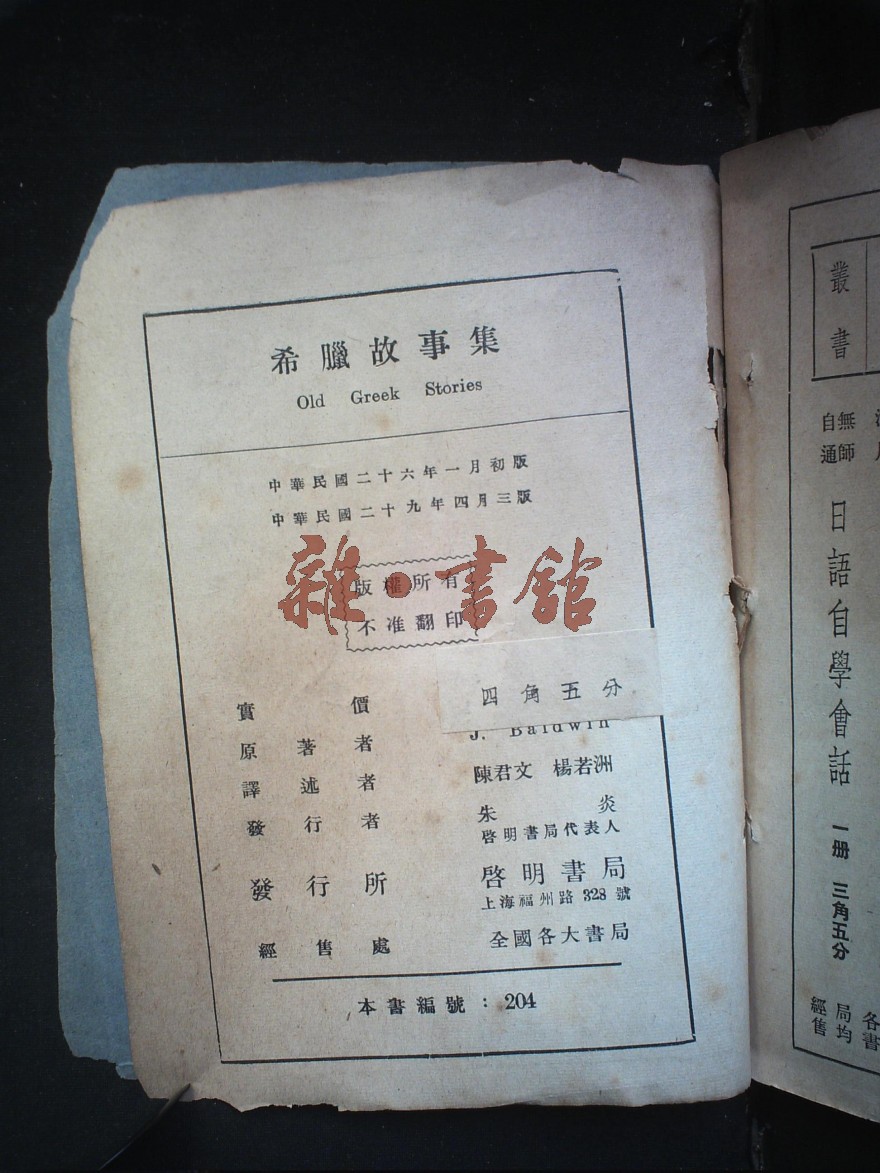 希臘故事集
Old Greek Stories
中華民國二十六年一月初版
中華民國二十九年四月三版
版權所有
不准翻印
雜·書館
實價 四角五分
原著者 J. Baldwin
譯述者 陳君文 楊若洲
發行者 朱炎
啓明書局代表人
發行所 啓明書局
上海福州路 328 號
經售處 全國各大書局
本書編號：204
叢書
無師
自通
日語自學會話
一册 三角五分
各書
局均
經售